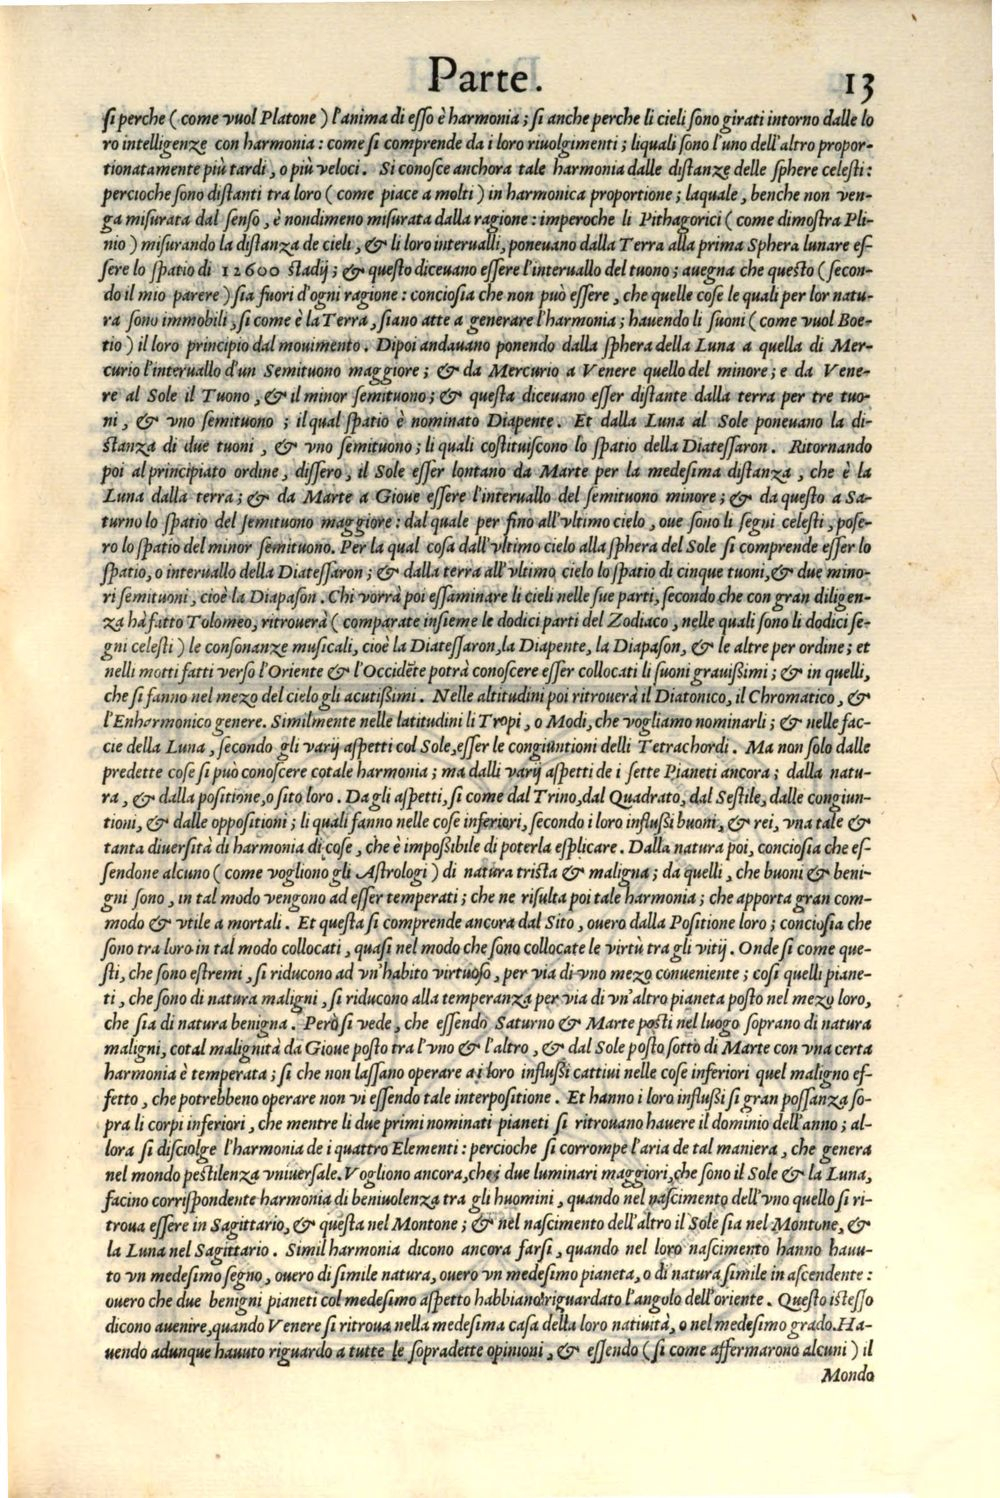 Parte. 13
si perche ( come vuol Platone ) l'anima di esso è harmonia ; si anche perche li cieli sono girati intorno dalle lo
ro intelligenze con harmonia : come si comprende da i loro riuolgimenti ; liquali sono l'uno dell'altro propor-
tionatamente più tardi , o più veloci . Si conosce anchora tale harmonia dalle distanze delle sphere celesti :
percioche sono distanti tra loro ( come piace a molti ) in harmonica proportione ; laquale , benche non ven-
ga misurata dal senso , è nondimeno misurata dalla ragione : imperoche li Pithagorici ( come dimostra Pli-
nio ) misurando la distanza de cieli, & li loro interualli, poneuano dalla Terra alla prima Sphera lunare es-
sere lo spatio di 12600 stadij ; & questo diceuano essere l'interuallo del tuono ; auegna che questo ( secon-
do il mio parere ) sia fuori d'ogni ragione : conciosia che non può essere , che quelle cose le quali per lor natu-
ra sono immobili , si come è la Terra , siano atte a generare l'harmonia ; hauendo li suoni ( come vuol Boe-
tio ) il loro principio dal mouimento . Dipoi andauano ponendo dalla sphera della Luna a quella di Mer-
curio l'interuallo d'un Semituono maggiore ; & da Mercurio a Venere quello del minore ; e da Vene-
re al Sole il Tuono , & il minor semituono ; & questa diceuano esser distante dalla terra per tre tuo-
ni , & vno semituono ; il qual spatio è nominato Diapente . Et dalla Luna al Sole poneuano la di-
stanza di due tuoni , & vno semituono ; li quali costituiscono lo spatio della Diatessaron . Ritornando
poi al principiato ordine , dissero , il Sole esser lontano da Marte per la medesima distanza , che è la
Luna dalla terra ; & da Marte a Gioue essere l'interuallo del semituono minore ; & da questo a Sa-
turno lo spatio del semituono maggiore : dal quale per fino all'vltimo cielo , oue sono li segni celesti , pose-
ro lo spatio del minor semituono. Per la qual cosa dall'vltimo cielo alla sphera del Sole si comprende esser lo
spatio, o interuallo della Diatessaron ; & dalla terra all'vltimo cielo lo spatio di cinque tuoni, & due mino-
ri semituoni, cioè la Diapason . Chi vorrà poi essaminare li cieli nelle sue parti, secondo che con gran diligen-
za hà fatto Tolomeo, ritrouerà ( comparate insieme le dodici parti del Zodiaco , nelle quali sono li dodici se-
gni celesti ) le consonanze musicali, cioè la Diatessaron, la Diapente, la Diapason, & le altre per ordine ; et
nelli motti fatti verso l'Oriente & l'Occidẽte potrà conoscere esser collocati li suoni grauissimi ; & in quelli,
che si fanno nel mezo del cielo gli acutissimi . Nelle altitudini poi ritrouerà il Diatonico, il Chromatico , &
l'Enharmonico genere. Similmente nelle latitudini li Tropi, o Modi, che vogliamo nominarli ; & nelle fac-
cie della Luna , secondo gli varij aspetti col Sole, esser le congiuntioni delli Tetrachordi . Ma non solo dalle
predette cose si può conoscere cotale harmonia ; ma dalli varij aspetti de i sette Pianeti ancora ; dalla natu-
ra , & dalla positione, o sito loro . Da gli aspetti, si come dal Trino, dal Quadrato, dal Sestile, dalle congiun-
tioni, & dalle oppositioni ; li quali fanno nelle cose inferiori, secondo i loro influssi buoni, & rei, vna tale &
tanta diuersità di harmonia di cose , che è impossibile di poterla esplicare . Dalla natura poi, conciosia che es-
sendone alcuno ( come vogliono gli Astrologi ) di natura trista & maligna ; da quelli , che buoni & beni-
gni sono , in tal modo vengono ad esser temperati ; che ne risulta poi tale harmonia ; che apporta gran com-
modo & vtile a mortali . Et questa si comprende ancora dal Sito , ouero dalla Positione loro ; conciosia che
sono tra loro in tal modo collocati , quasi nel modo che sono collocate le virtù tra gli vitij . Onde si come que-
sti, che sono estremi , si riducono ad vn'habito virtuoso , per via di vno mezo conueniente ; cosi quelli piane-
ti , che sono di natura maligni , si riducono alla temperanza per via di vn'altro pianeta posto nel mezo loro,
che sia di natura benigna . Però si vede , che essendo Saturno & Marte posti nel luogo soprano di natura
maligni, cotal malignità da Gioue posto tra l'vno & l'altro , & dal Sole posto sotto di Marte con vna certa
harmonia è temperata ; si che non lassano operare a i loro influssi cattiui nelle cose inferiori quel maligno ef-
fetto , che potrebbeno operare non vi essendo tale interpositione . Et hanno i loro influssi si gran possanza so-
pra li corpi inferiori , che mentre li due primi nominati pianeti si ritrouano hauere il dominio dell'anno ; al-
lora si disciolge l'harmonia de i quattro Elementi : percioche si corrompe l'aria de tal maniera , che genera
nel mondo pestilenza vniuersale. Vogliono ancora, che i due luminari maggiori, che sono il Sole & la Luna,
facino corrispondente harmonia di beniuolenza tra gli huomini , quando nel nascimento dell'vno quello si ri-
troua essere in Sagittario, & questa nel Montone ; & nel nascimento dell'altro il Sole sia nel Montone, &
la Luna nel Sagittario . Simil harmonia dicono ancora farsi , quando nel loro nascimento hanno hauu-
to vn medesimo segno, ouero di simile natura, ouero vn medesimo pianeta, o di natura simile in ascendente :
ouero che due benigni pianeti col medesimo aspetto habbiano riguardato l'angolo dell'oriente . Questo istesso
dicono auenire, quando Venere si ritroua nella medesima casa della loro natiuità, o nel medesimo grado. Ha-
uendo adunque hauuto riguardo a tutte le sopradette opinioni , & essendo ( si come affermarono alcuni ) il
Mondo